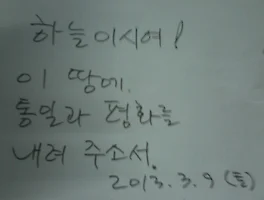 하늘이시여!
이 땅에.
통일과 평화를
내려 주소서.
2013. 3. 9 (토)